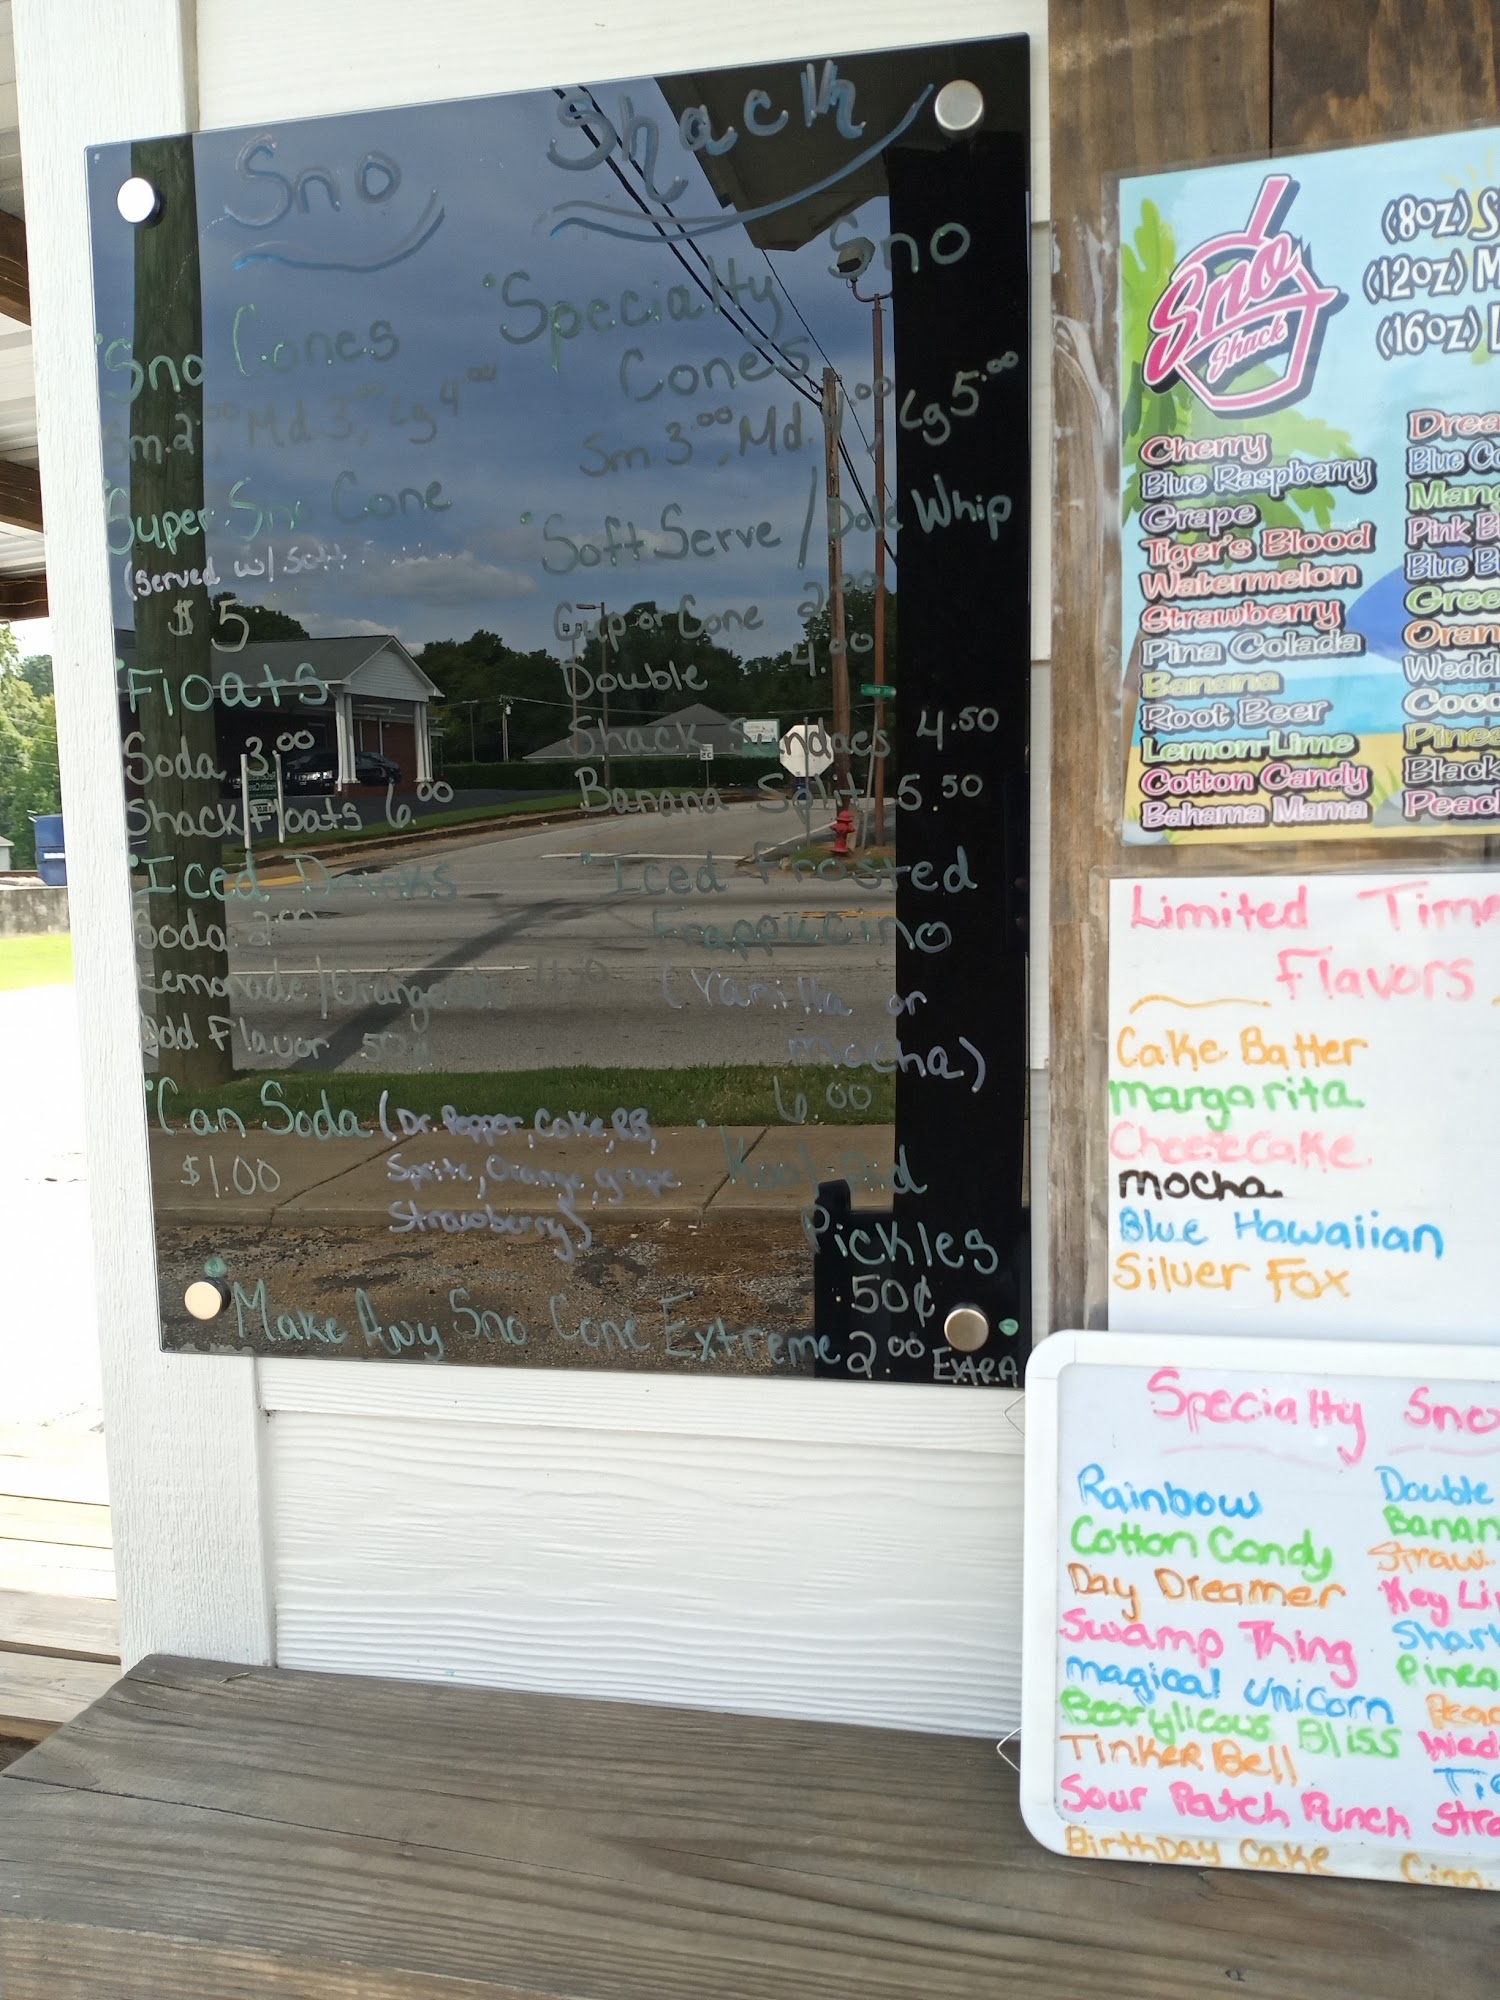 Sno Shack
Sno Cones
Sm. 2.00, Md. 3.00, Lg 4.00
Super Sno Cone
(served w/ Soft
$5
Floats
Soda 3.00
Shack Floats 6.00
Iced Drinks
Soda 2.00
Lemonade/Orangeade
Add Flavor 50¢
Can Soda (Dr. Pepper, Coke, RB,
Sprite, Orange, grape
Strawberry)
$1.00
Specialty Sno
Cones
Sm 3.00, Md. 4.00, Lg 5.00
Soft Serve / Dole Whip
Cup or Cone 2.00
Double 4.00
Shack Sundaes 4.50
Banana Split 5.50
Iced Frosted
Frappucino
(Vanilla or
mocha)
6.00
Kool-Aid
Pickles
.50¢
Make Any Sno Cone Extreme 2.00 EXTRA
Sno
Shack
(8oz) S
(12oz) M
(16oz)
Cherry
Blue Raspberry
Grape
Tiger's Blood
Watermelon
Strawberry
Pina Colada
Banana
Root Beer
Lemon-Lime
Cotton Candy
Bahama Mama
Drea
Blue Co
Mang
Pink B
Blue B
Gree
Oran
Wedd
Coco
Pine
Black
Peac
Limited Time
Flavors
Cake Batter
margarita
Cheesecake
mocha
Blue Hawaiian
Silver Fox
Specialty Sno
Rainbow
Cotton Candy
Day Dreamer
Swamp Thing
magical unicorn
Bearylicous Bliss
Tinker Bell
Sour Patch Punch
Birthday Cake
Double
Banan
Straw
Key Li
Shar
Pinea
Peac
Wed
Ti
Stra
Cinn